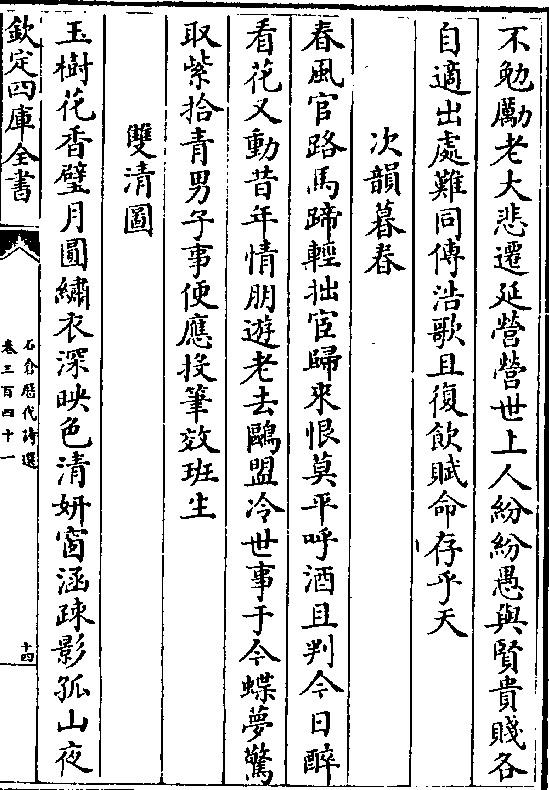 不勉勵老大悲遷延營營世上人紛紛愚與賢貴賤各
自適出處難同傳浩歌且復飲賦命存乎天
次韻暮春
春風官路馬蹄輕拙宦歸來恨莫平呼酒且判今日醉
看花又動昔年情朋遊老去鷗盟冷世事于今蝶夢驚
取紫拾青男子事便應投筆效班生
雙清圖
玉樹花香璧月圓繡衣深映色清妍窗涵疎影孤山夜
欽定四庫全書
石倉歷代詩選
卷三百四十一
十四